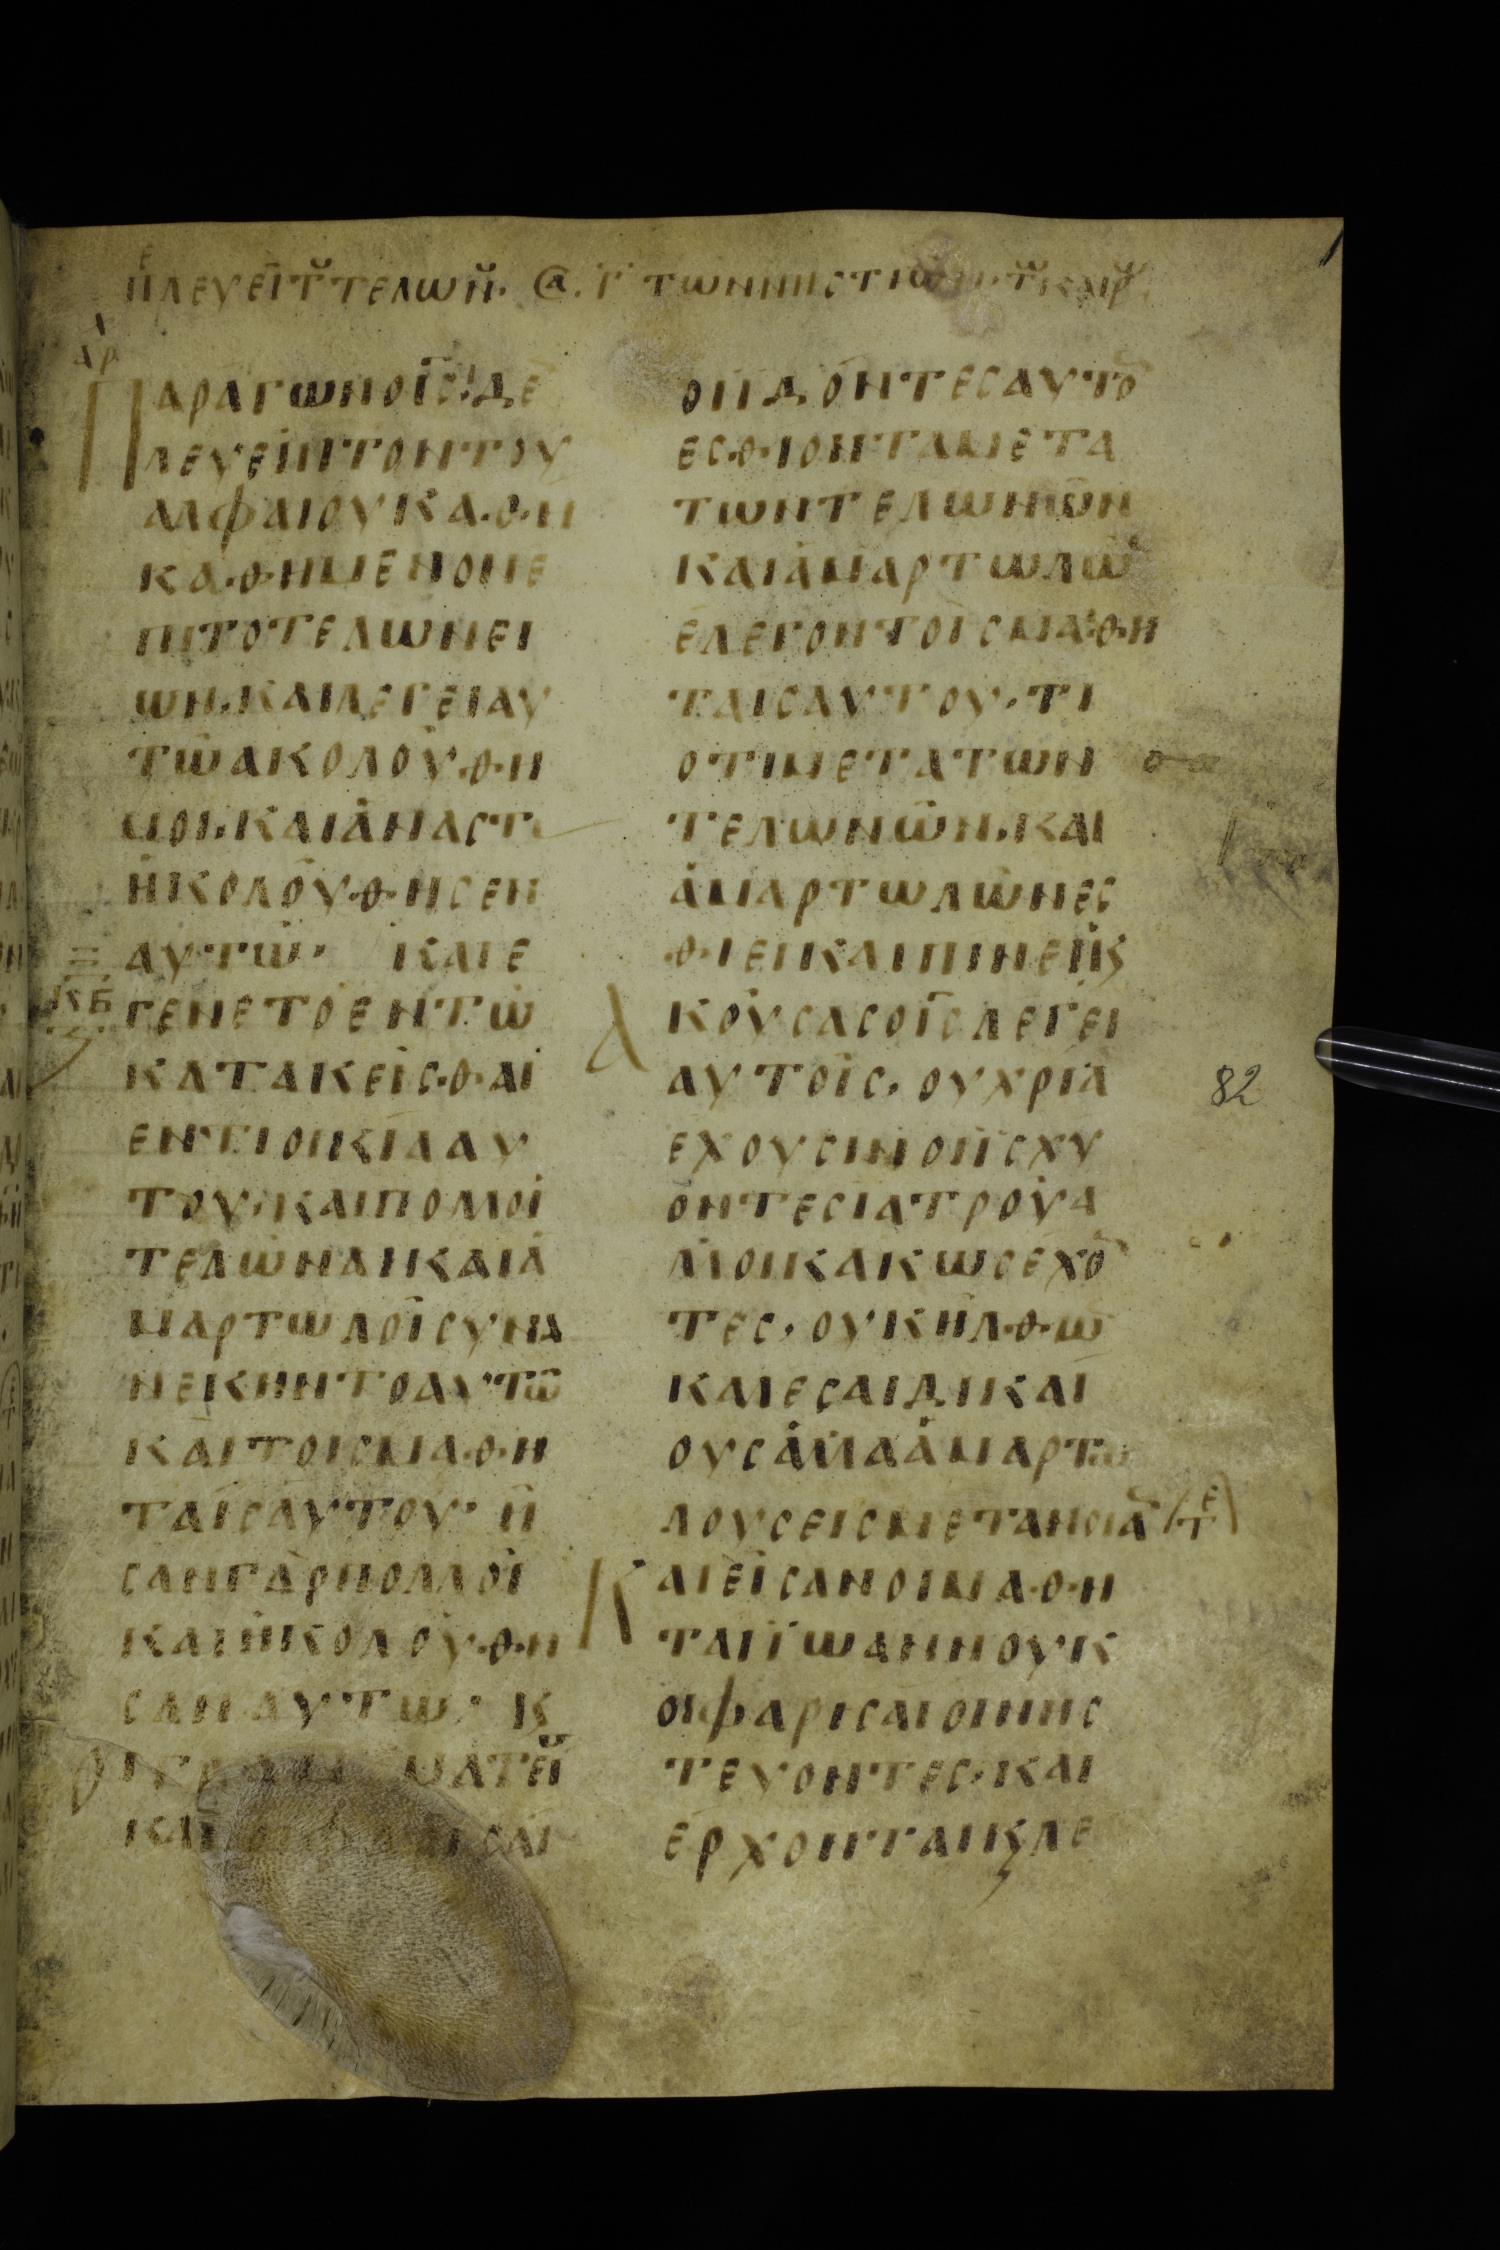 ΠΛΕΥΕΙΤΤΕΛΩΝ. Γ ΤΩΝΝΗϹΤΙΩΝ
ΠΑΡΑΓΩΝΟΙϹΙΔΕ
ΛΕΥΕΙΝΤΟΝΤΟΥ
ΑΛΦΑΙΟΥΚΑΘΗ
ΚΑΘΗΜΕΝΟΝΕ
ΠΙΤΟΤΕΛΩΝΕΙ
ΩΝ, ΚΑΙΛΕΓΕΙΑΥ
ΤΩΑΚΟΛΟΥΘΗ
ΜΟΙ, ΚΑΙΑΝΑϹΤ
ΗΚΟΛΟΥΘΗϹΕΝ
ΑΥΤΩ· ΚΑΙΕ
ΚΒ ΓΕΝΕΤΟΕΝΤΩ
ΚΑΤΑΚΕΙϹΘΑΙ
ΕΝΤΙΟΙΚΙΑΑΥ
ΤΟΥ, ΚΑΙΠΟΛΛΟΙ
ΤΕΛΩΝΑΙΚΑΙΑ
ΜΑΡΤΩΛΟΙϹΥΝΑ
ΝΕΚΗΝΤΟΑΥΤΩ
ΚΑΙΤΟΙϹΜΑΘΗ
ΤΑΙϹΑΥΤΟΥ· Η
ϹΑΝΓΑΡΠΟΛΛΟΙ
ΚΑΙΗΚΟΛΟΥΘΗ
ϹΑΝΑΥΤΩ· Κ
ΟΙΓΡΑΜΜΑΤΕΙ
ΚΑΙ ϹΑΙ
ΟΙΙΔΟΝΤΕϹΑΥΤΟ
ΕϹΘΙΟΝΤΑΜΕΤΑ
ΤΩΝΤΕΛΩΝΩΝ
ΚΑΙΑΜΑΡΤΩΛΩ
ΕΛΕΓΟΝΤΟΙϹΜΑΘΗ
ΤΑΙϹΑΥΤΟΥ, ΤΙ
ΟΤΙΜΕΤΑΤΩΝ
ΤΕΛΩΝΩΝ, ΚΑΙ
ΑΜΑΡΤΩΛΩΝΕϹ
ΘΙΕΙΚΑΙΠΙΝΕΙΚ
ΑΚΟΥϹΑϹΟΙϹΛΕΓΕΙ
ΑΥΤΟΙϹ, ΟΥΧΡΙΑ
82
ΕΧΟΥϹΙΝΟΙΙϹΧΥ
ΟΝΤΕϹΙΑΤΡΟΥΑ
ΛΛΟΙΚΑΚΩϹΕΧΟ
ΤΕϹ, ΟΥΚΗΛΘΩ
ΚΑΛΕϹΑΙΔΙΚΑΙ
ΟΥϹΑΛΛΑΑΜΑΡΤΩ
ΛΟΥϹΕΙϹΜΕΤΑΝΟΙΑ
ΚΑΙΕΙϹΑΝΟΙΜΑΘΗ
ΤΑΙΙΩΑΝΝΟΥΚ
ΟΙΦΑΡΙϹΑΙΟΙΝΗϹ
ΤΕΥΟΝΤΕϹ, ΚΑΙ
ΕΡΧΟΝΤΑΙΚΛΕ